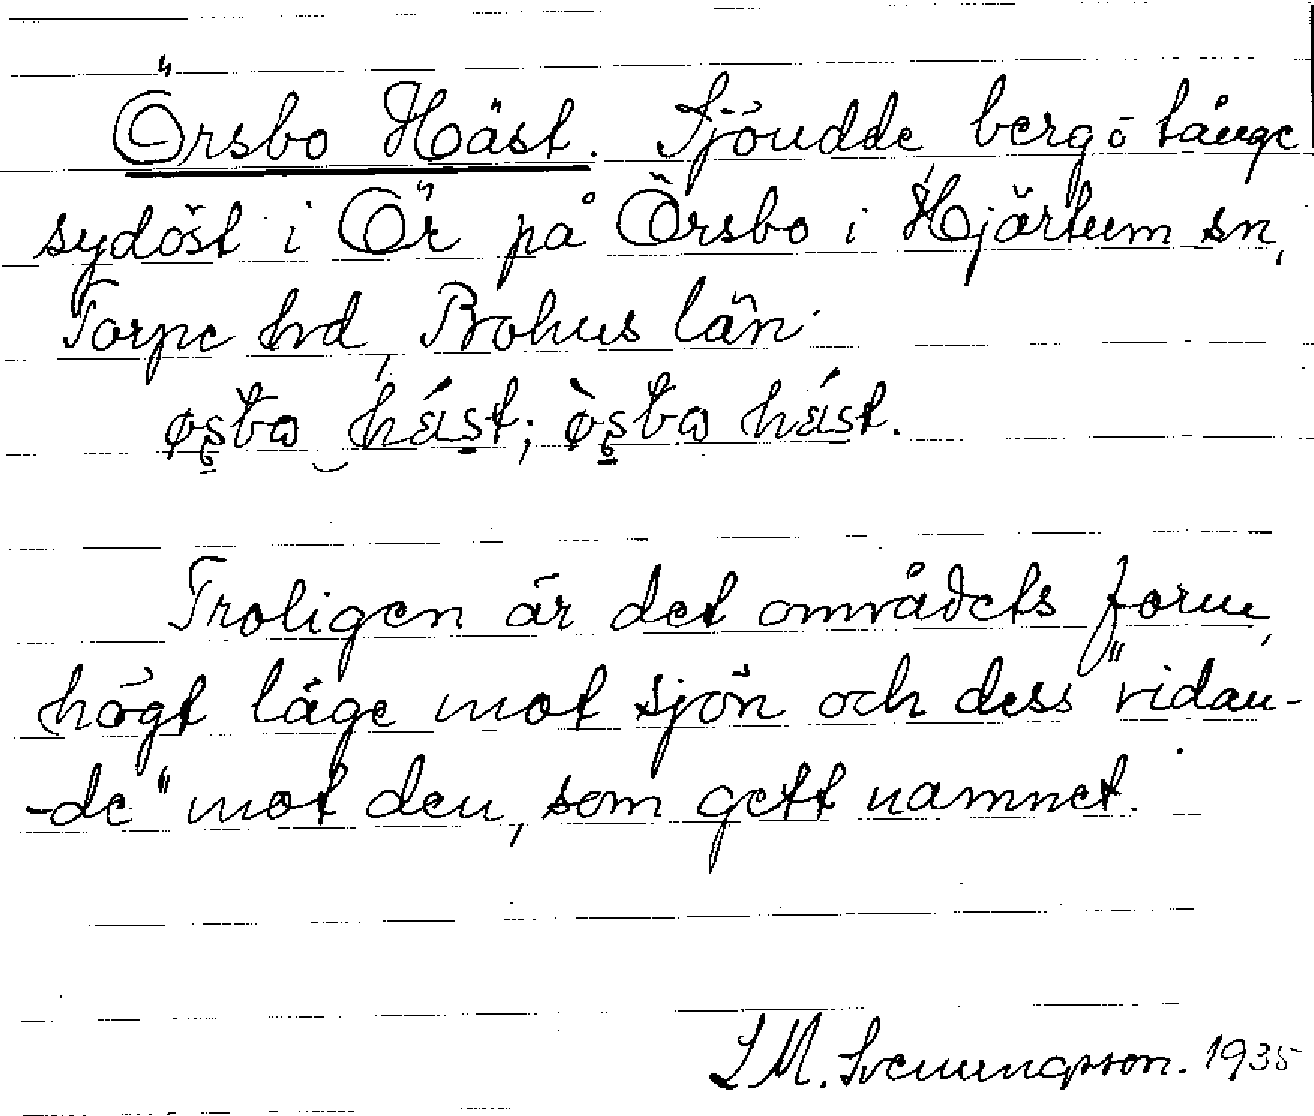 Örsbo Häst. Sjöudde, berg o tånge
sydöst i Ör på Örsbo i Hjärtum sn,
Torpe hd, Bohus län.
häst; häst.
Troligen är det områdets form,
högt läge mot sjön och dess "ridan-
-de" mot den, som gett namnet.
L M. Svenungsson. 1935